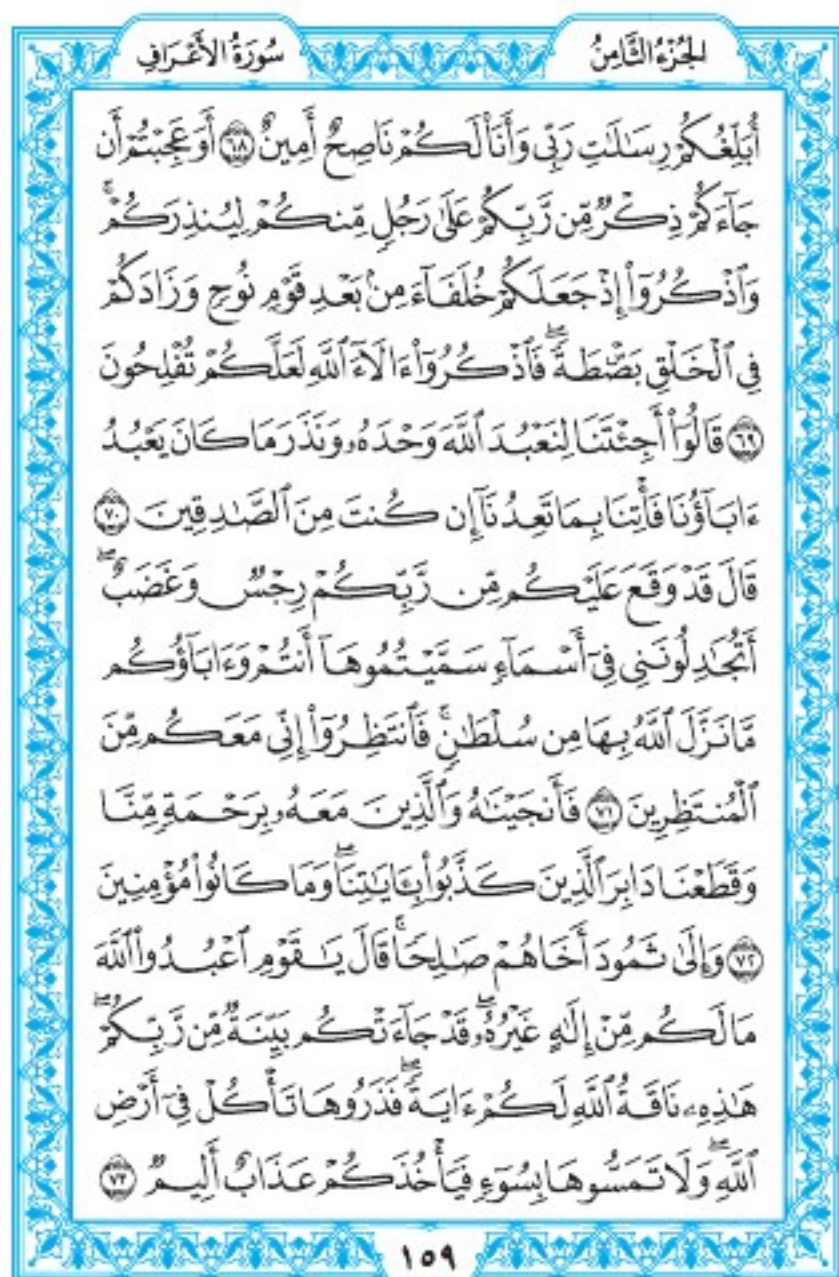 الجُزْءُ الثَّامِنُ
سُورَةُ الأَعْرَافِ
أُبَلِّغُكُمْ رِسَٰلَٰتِ رَبِّى وَأَنَا۠ لَكُمْ نَاصِحٌ أَمِينٌ ٦٨ أَوَعَجِبْتُمْ أَن
جَآءَكُمْ ذِكْرٌ مِّن رَّبِّكُمْ عَلَىٰ رَجُلٍ مِّنكُمْ لِيُنذِرَكُمْ ۚ
وَٱذْكُرُوٓا۟ إِذْ جَعَلَكُمْ خُلَفَآءَ مِنۢ بَعْدِ قَوْمِ نُوحٍ وَزَادَكُمْ
فِى ٱلْخَلْقِ بَصْۜطَةً ۖ فَٱذْكُرُوٓا۟ ءَالَآءَ ٱللَّهِ لَعَلَّكُمْ تُفْلِحُونَ
٦٩ قَالُوٓا۟ أَجِئْتَنَا لِنَعْبُدَ ٱللَّهَ وَحْدَهُۥ وَنَذَرَ مَا كَانَ يَعْبُدُ
ءَابَآؤُنَا فَأْتِنَا بِمَا تَعِدُنَآ إِن كُنتَ مِنَ ٱلصَّٰدِقِينَ ٧٠
قَالَ قَدْ وَقَعَ عَلَيْكُم مِّن رَّبِّكُمْ رِجْسٌ وَغَضَبٌ ۖ
أَتُجَٰدِلُونَنِى فِىٓ أَسْمَآءٍ سَمَّيْتُمُوهَآ أَنتُمْ وَءَابَآؤُكُم
مَّا نَزَّلَ ٱللَّهُ بِهَا مِن سُلْطَٰنٍ ۚ فَٱنتَظِرُوٓا۟ إِنِّى مَعَكُم مِّنَ
ٱلْمُنتَظِرِينَ ٧١ فَأَنجَيْنَٰهُ وَٱلَّذِينَ مَعَهُۥ بِرَحْمَةٍ مِّنَّا
وَقَطَعْنَا دَابِرَ ٱلَّذِينَ كَذَّبُوا۟ بِـَٔايَٰتِنَا ۖ وَمَا كَانُوا۟ مُؤْمِنِينَ
٧٢ وَإِلَىٰ ثَمُودَ أَخَاهُمْ صَٰلِحًا ۗ قَالَ يَٰقَوْمِ ٱعْبُدُوا۟ ٱللَّهَ
مَا لَكُم مِّنْ إِلَٰهٍ غَيْرُهُۥ ۖ قَدْ جَآءَتْكُم بَيِّنَةٌ مِّن رَّبِّكُمْ ۖ
هَٰذِهِۦ نَاقَةُ ٱللَّهِ لَكُمْ ءَايَةً ۖ فَذَرُوهَا تَأْكُلْ فِىٓ أَرْضِ
ٱللَّهِ ۖ وَلَا تَمَسُّوهَا بِسُوٓءٍ فَيَأْخُذَكُمْ عَذَابٌ أَلِيمٌ ٧٣
١٥٩